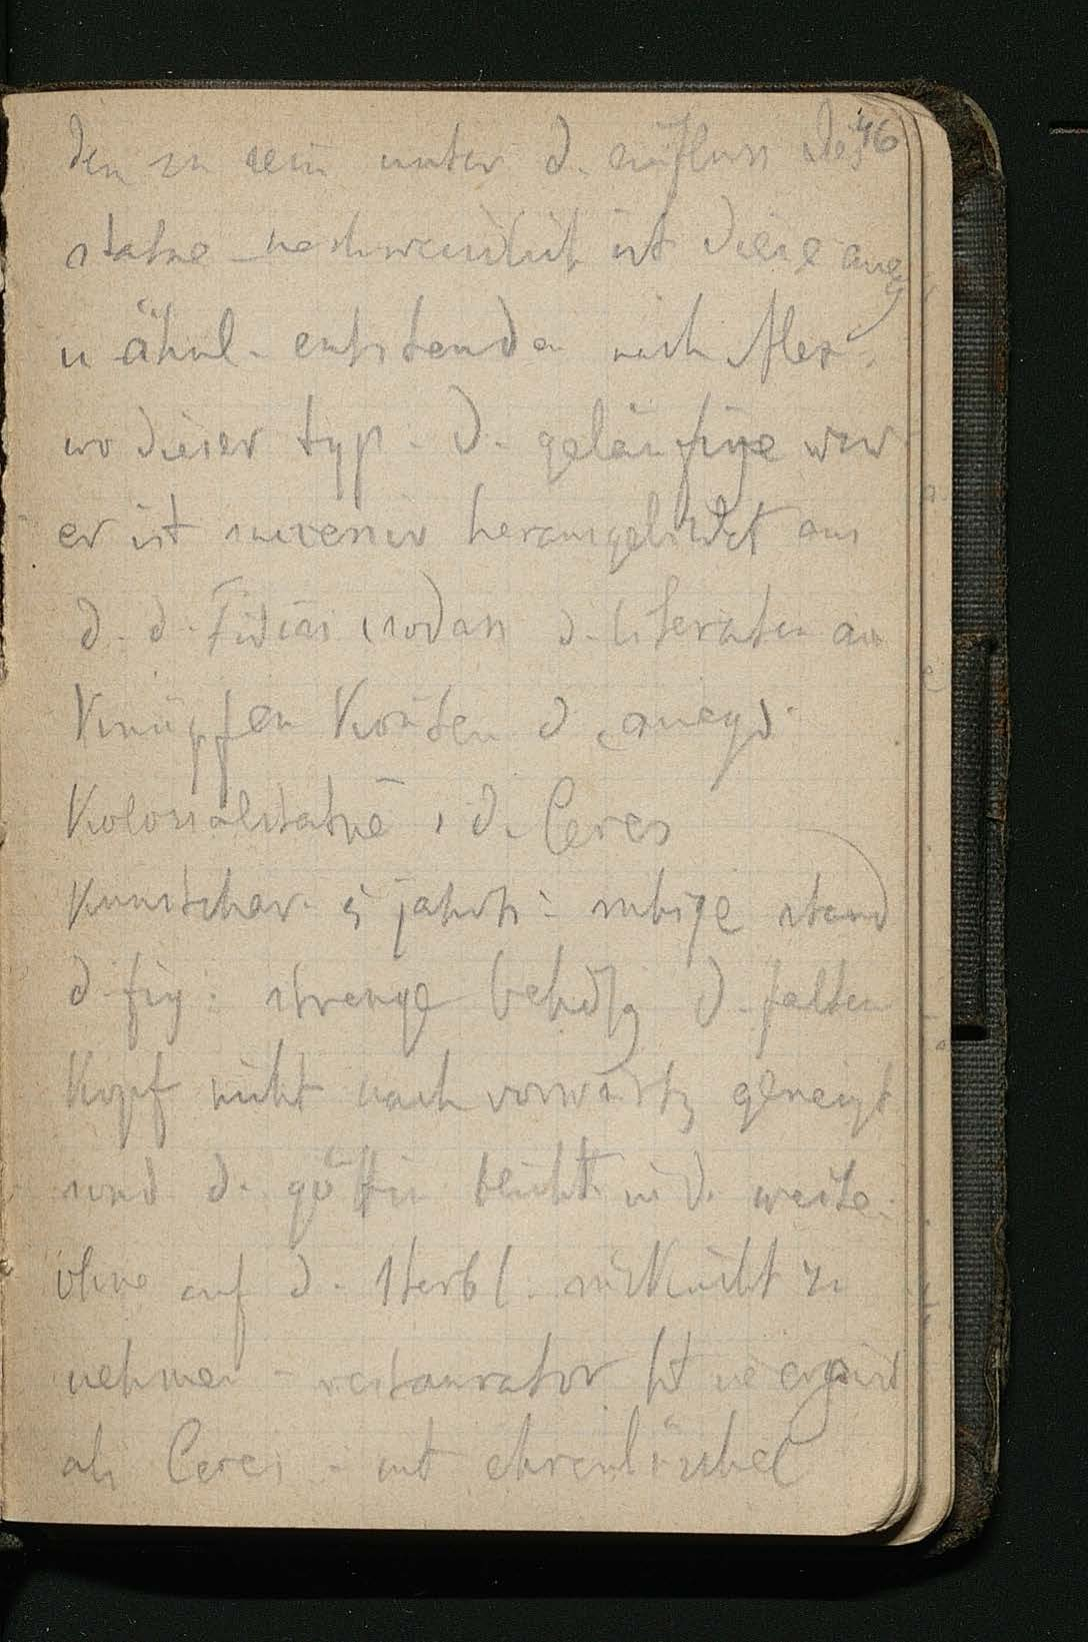 46
den zu sein unter d. einfluss des
statue nachweislich ist diese aug
u ähnl. entstanden nach Alex.
wo dieser typ. d. geläufige war
er ist herausgebildet aus
d. d. Fidias sodass d. literaten an
Knüpfen Könten d.
Kolossalstatue d. Ceres
Kunstchar. 5 jahrh: ruhige stand
d. fig: strenge behdlg d. falten
Kopf nicht nach vorwärts geneigt
und d. göttin blickt in d. weite.
ohne auf d. sterbl. rücksicht zu
nehmen - restaurator ht sie ergänzt
als Ceres - mit ehrenbüschel